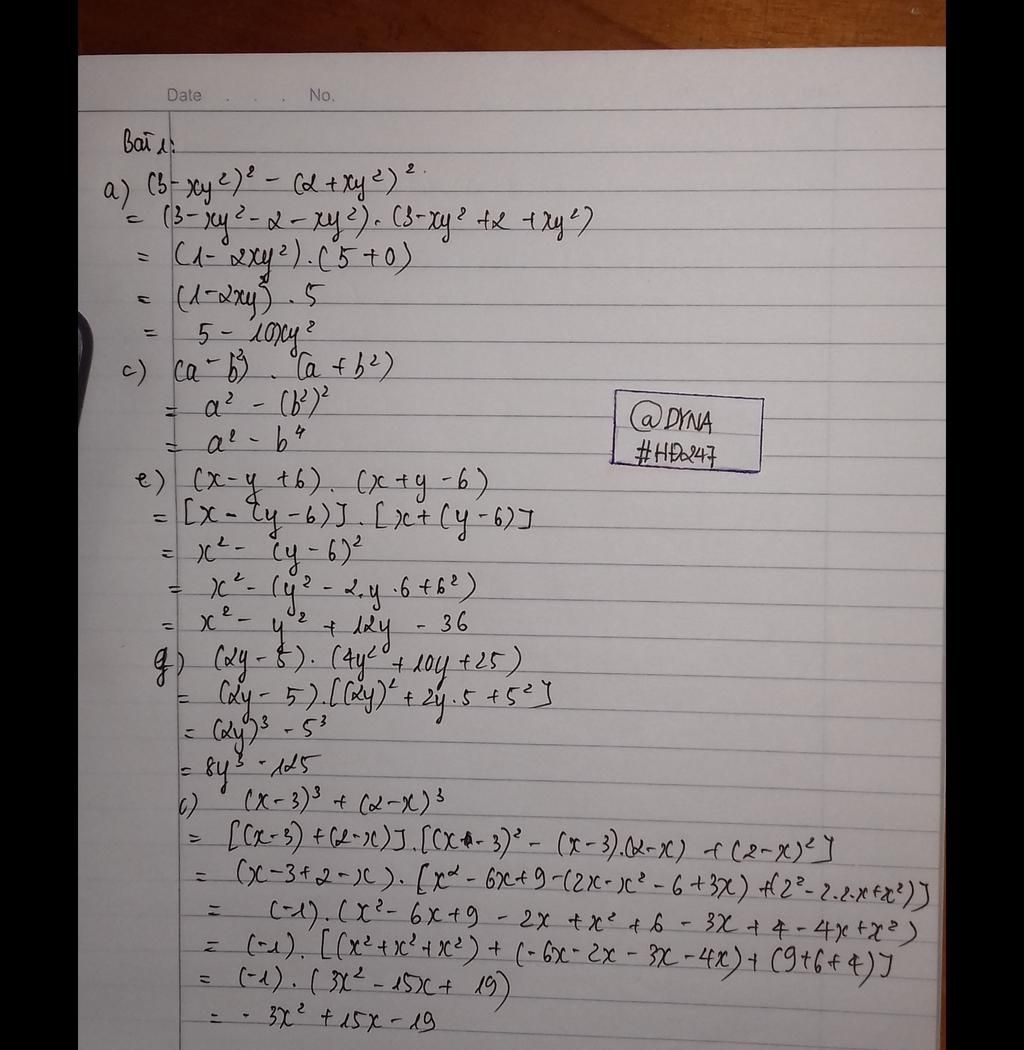 Date . . . No.
Bài 1:
a) (3 - xy²)² - (2 + xy²)²
= (3 - xy² - 2 - xy²).(3 - xy² + 2 + xy²)
= (1 - 2xy²).(5 + 0)
= (1 - 2xy²).5
= 5 - 10xy²
c) (a - b²).(a + b²)
= a² - (b²)²
= a² - b⁴
@DYNA
#HĐ247
e) (x - y + 6).(x + y - 6)
= [x - (y - 6)].[x + (y - 6)]
= x² - (y - 6)²
= x² - (y² - 2.y.6 + 6²)
= x² - y² + 12y - 36
g) (2y - 5).(4y² + 10y + 25)
= (2y - 5).[(2y)² + 2y.5 + 5²]
= (2y)³ - 5³
= 8y³ - 125
i) (x - 3)³ + (2 - x)³
= [(x - 3) + (2 - x)].[(x - 3)² - (x - 3).(2 - x) + (2 - x)²]
= (x - 3 + 2 - x).[x² - 6x + 9 - (2x - x² - 6 + 3x) + (2² - 2.2.x + x²)]
= (-1).(x² - 6x + 9 - 2x + x² + 6 - 3x + 4 - 4x + x²)
= (-1).[(x² + x² + x²) + (-6x - 2x - 3x - 4x) + (9 + 6 + 4)]
= (-1).(3x² - 15x + 19)
= -3x² + 15x - 19